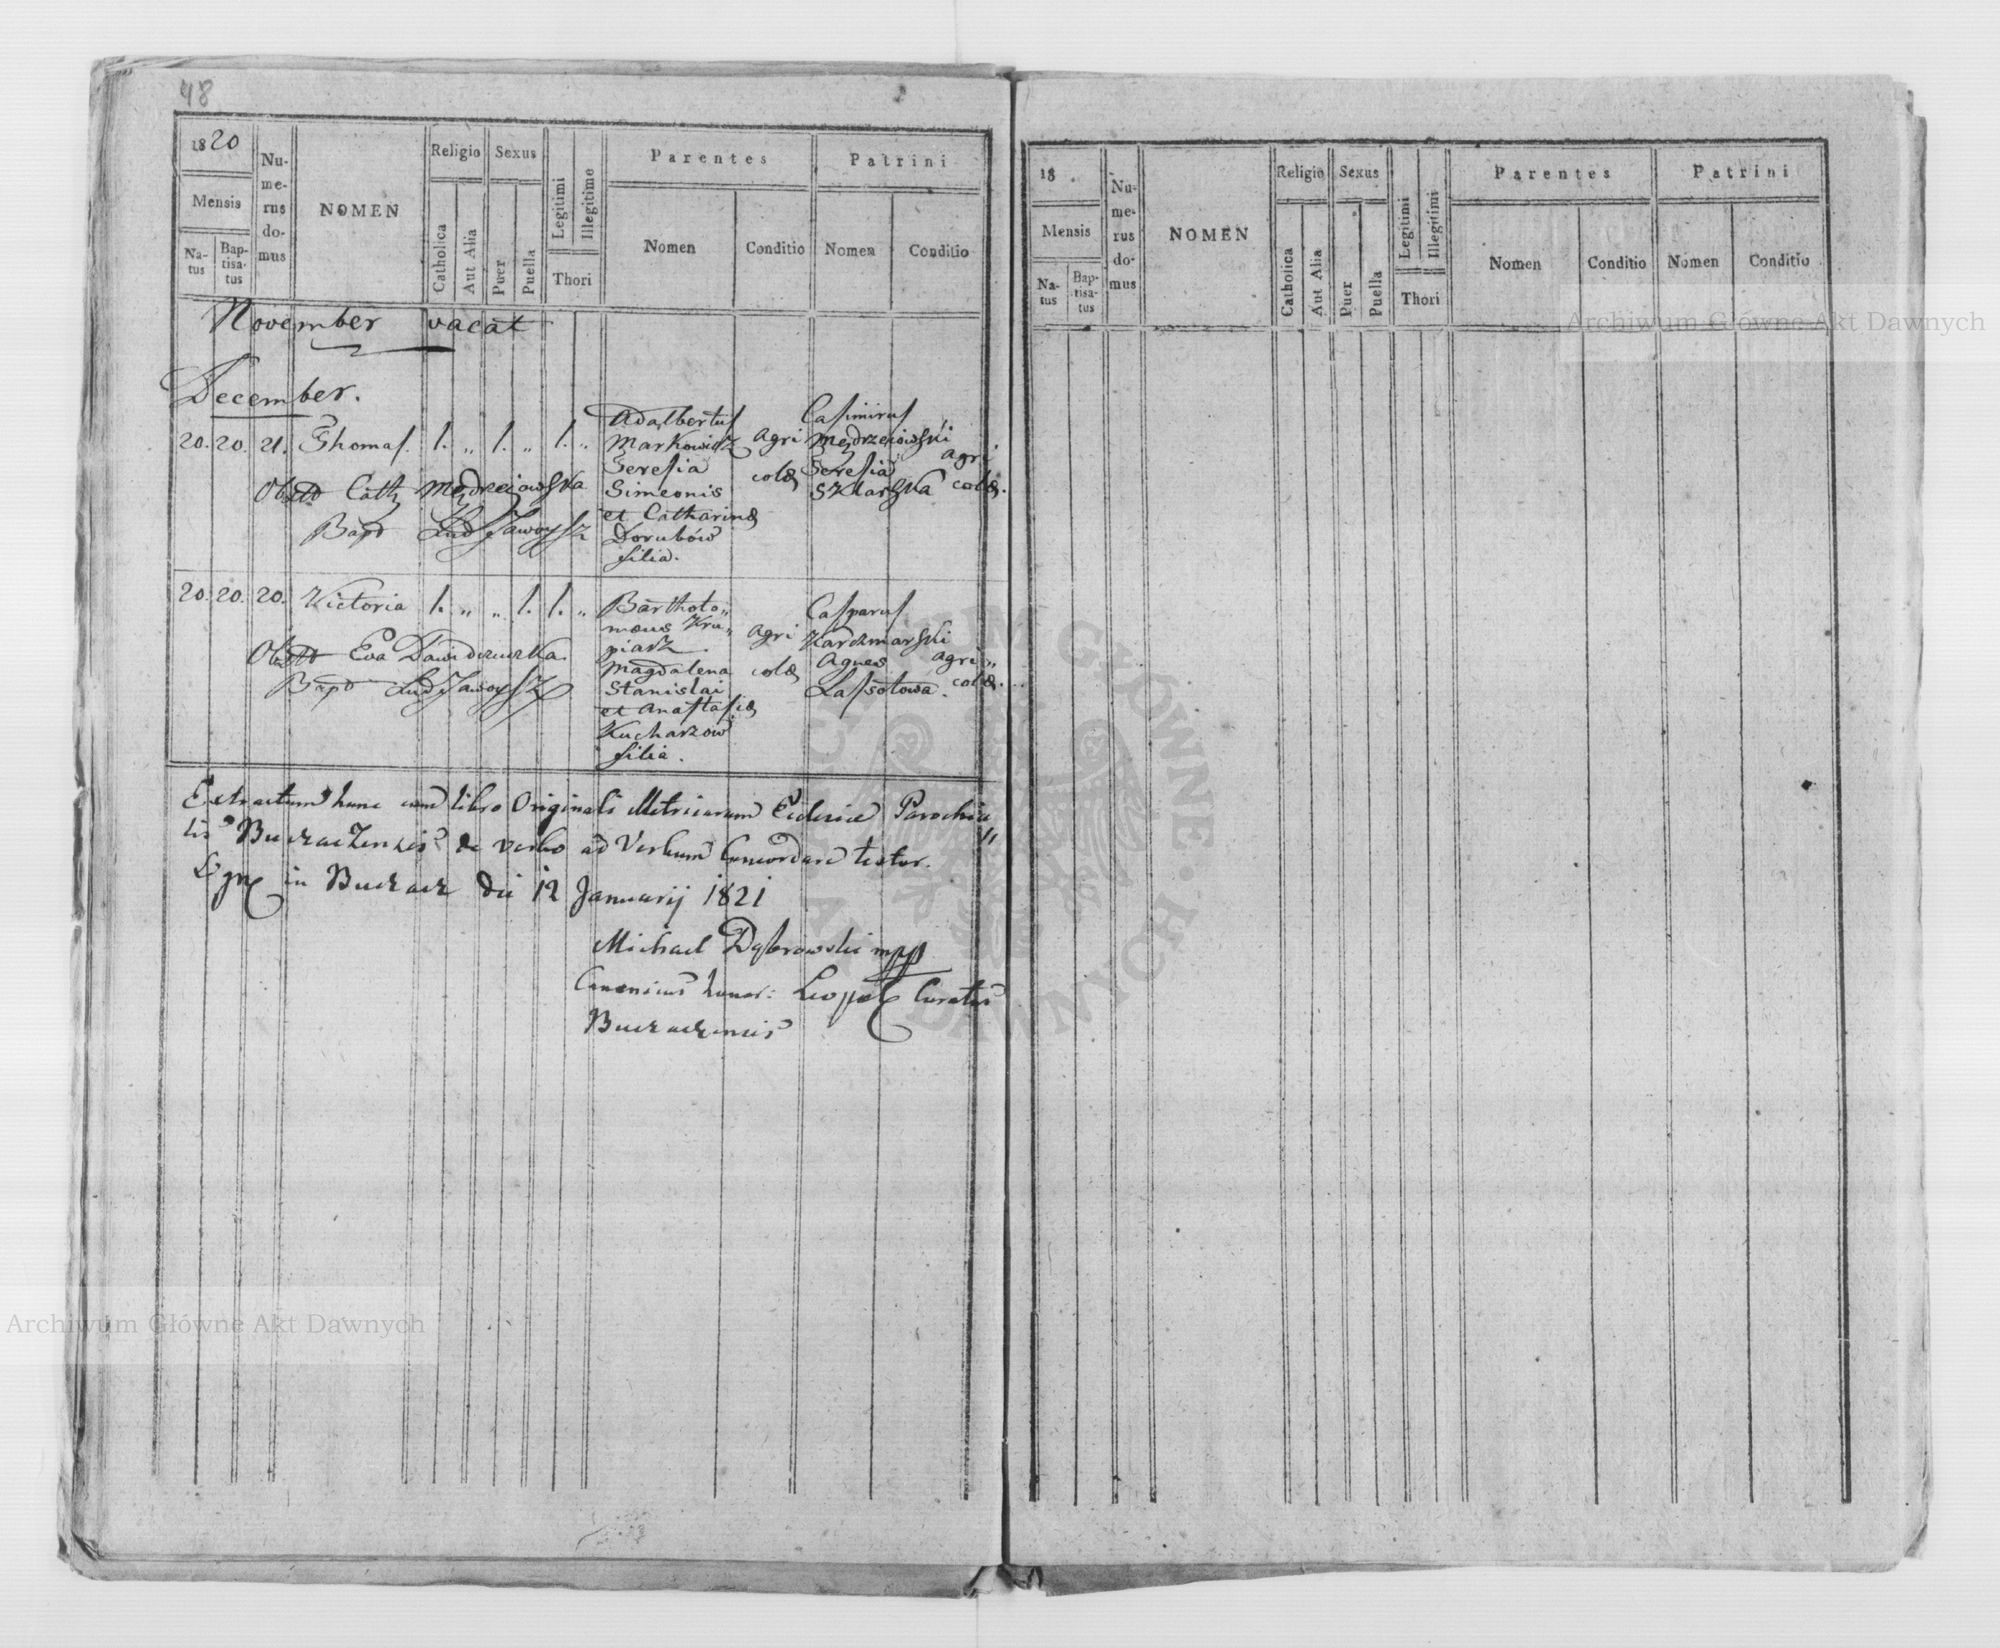 48
1820
Mensis
Na-
tus
Bap-
tisa-
tus
Nu-
me-
rus
do-
mus
NOMEN
Religio
Catholica
Aut Alia
Sexus
Puer
Puella
Legitimi
Illegitime
Thori
Parentes
Nomen
Conditio
Patrini
Nomen
Conditio
November vacat
December.
20. 20. 21. Thomas. 1. „ 1. „ 1. „
Obstt Cath Mędrzeiowska
Bapt Lud Jawoysz
Adalbertus
Markowicz
Teresia
Simeonis
et Catharinæ
Dorubów
filia.
Agri
colæ
Casimirus
Mędrzeiowski
Teresia
Szklarska
agri
colæ.
20. 20. 20. Victoria 1. „ „ 1. 1. „
Obstt Eva Dawidczuczka
Bapt Lud Jawoysz
Bartholo„
mæus Kru„
piarz
Magdalena
Stanislai
et Anastasiæ
Kucharzow
filia.
Agri
colæ
Casparus
Karczmarski
Agnes
Lassotowa.
agri„
colæ.
Extractum hunc cum libro Originali Metricarum Ecclesiæ Parochia„
lis Buczaczensis de verbo ad Verbum Concordare testor.
in Buczacz die 12 Januarij 1821
Michael Dąbrowski mpp
Canonicus honor: Leopol Curatus
Buczacensis
18
Mensis
Na-
tus
Bap-
tisa-
tus
Nu-
me-
rus
do-
mus
NOMEN
Religio
Catholica
Aut Alia
Sexus
Puer
Puella
Legitimi
Illegitimi
Thori
Parentes
Nomen
Conditio
Patrini
Nomen
Conditio
Archiwum Główne Akt Dawnych
Archiwum Główne Akt Dawnych